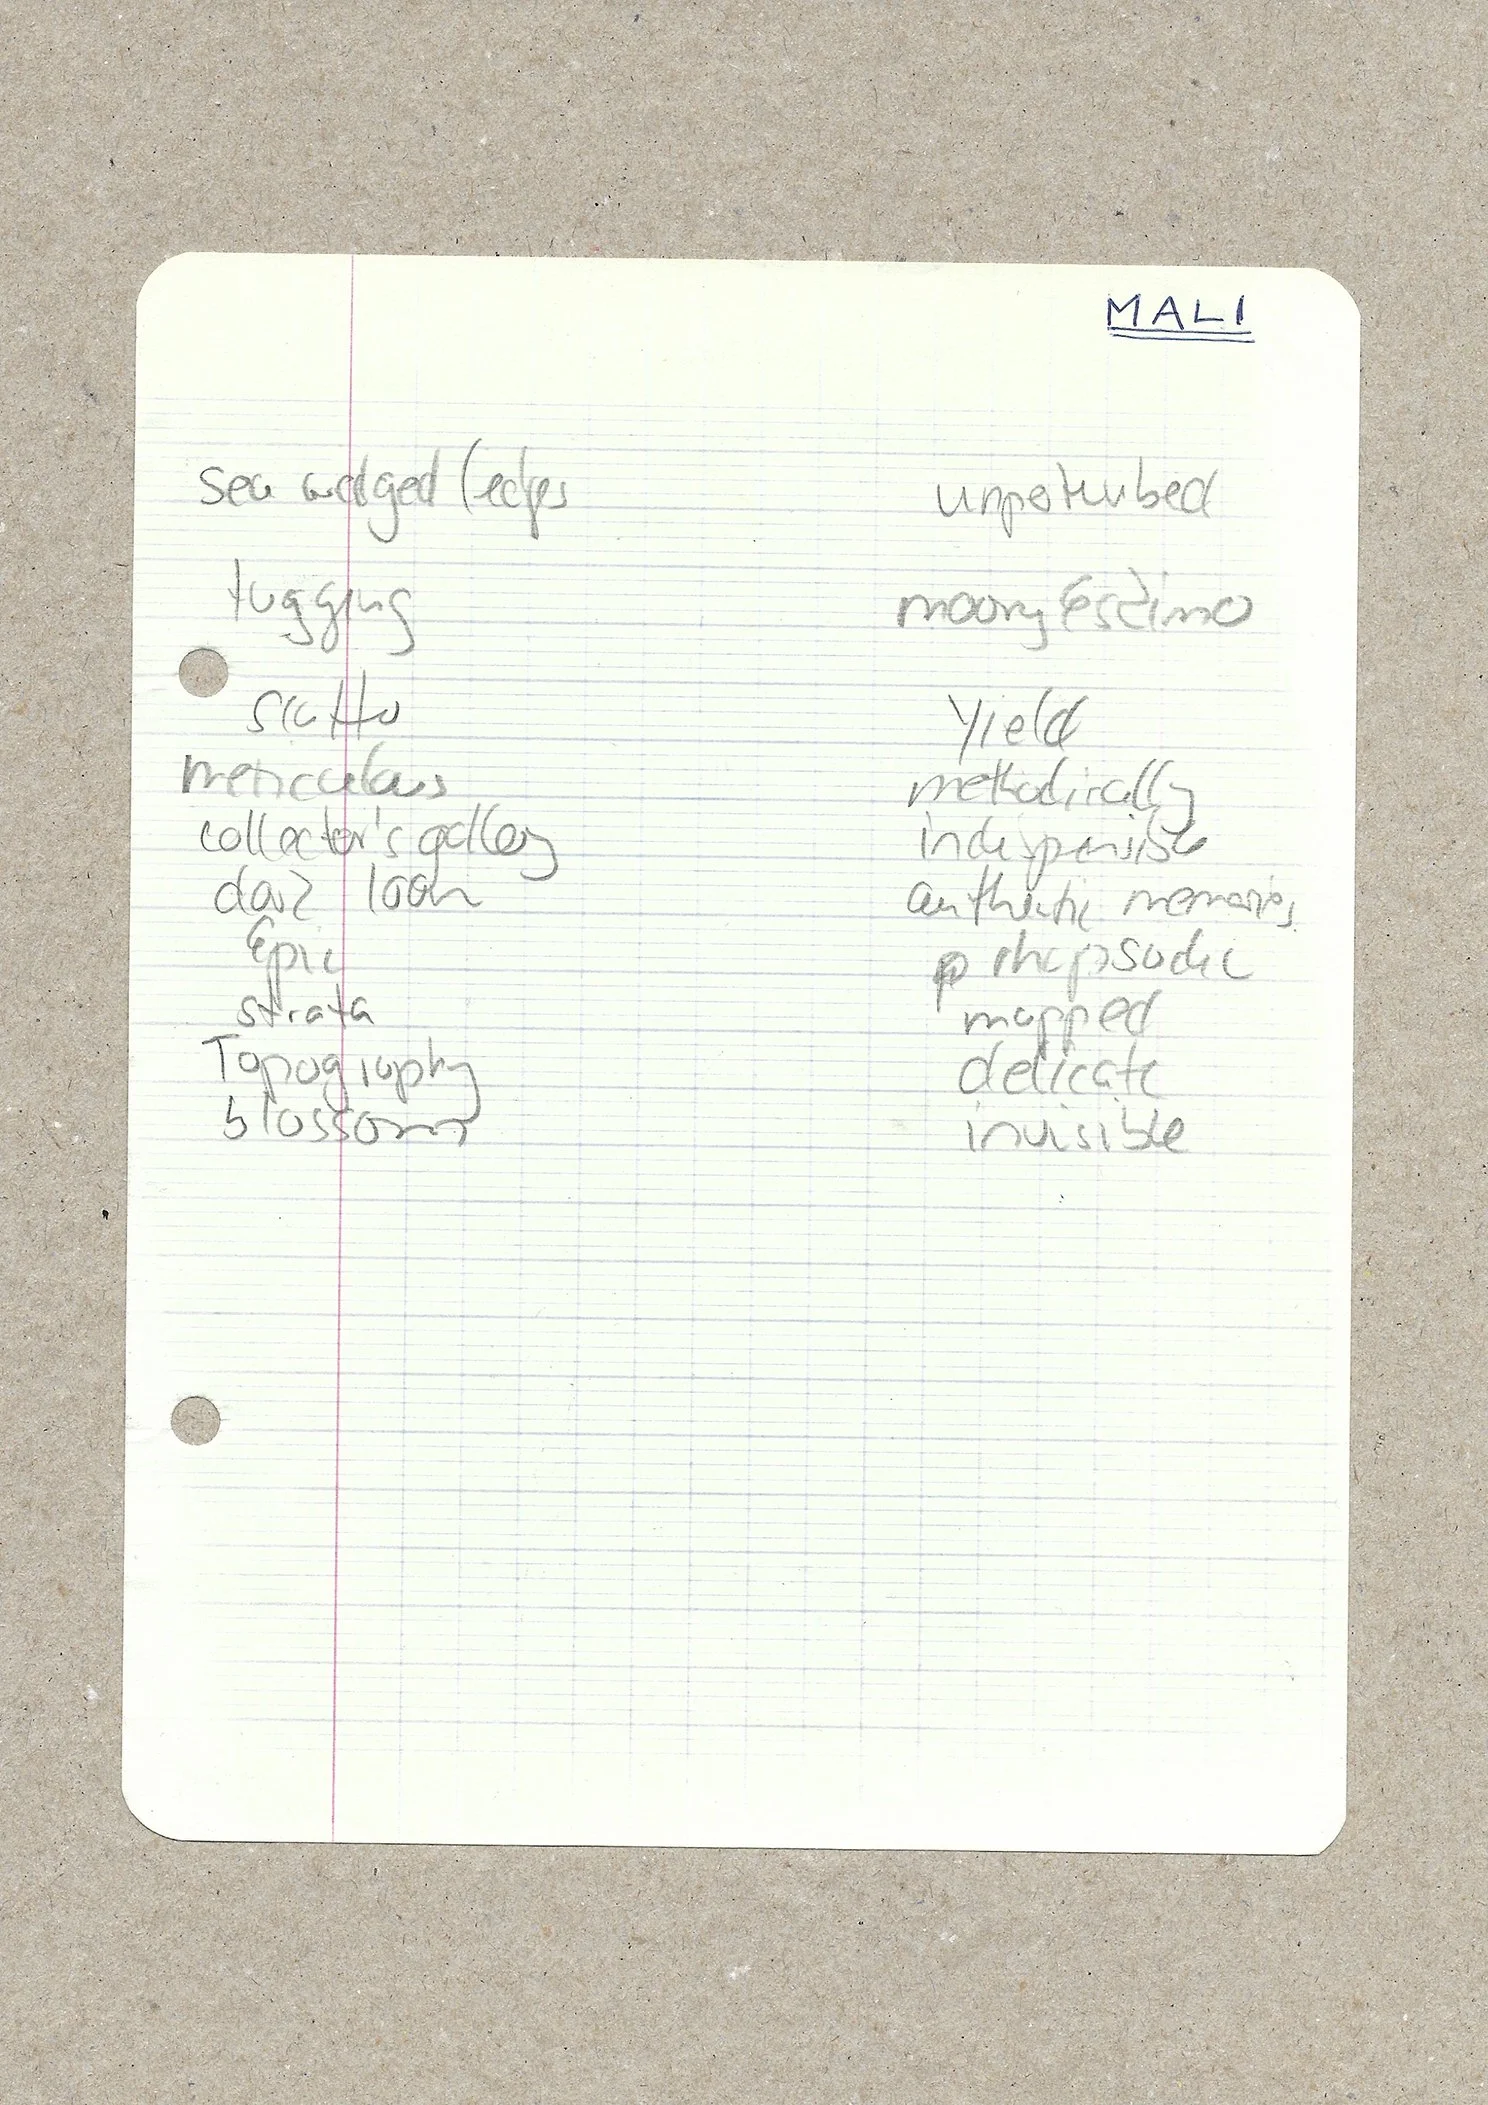 MALI
sea wedged ledges
unperturbed
tugging
moony Eskimo
yield
meticulous
methodically
collector's gallery
indispensible
dark loam
authentic memories
Epic
rhapsodic
strata
mapped
Topography
delicate
blossom
invisible